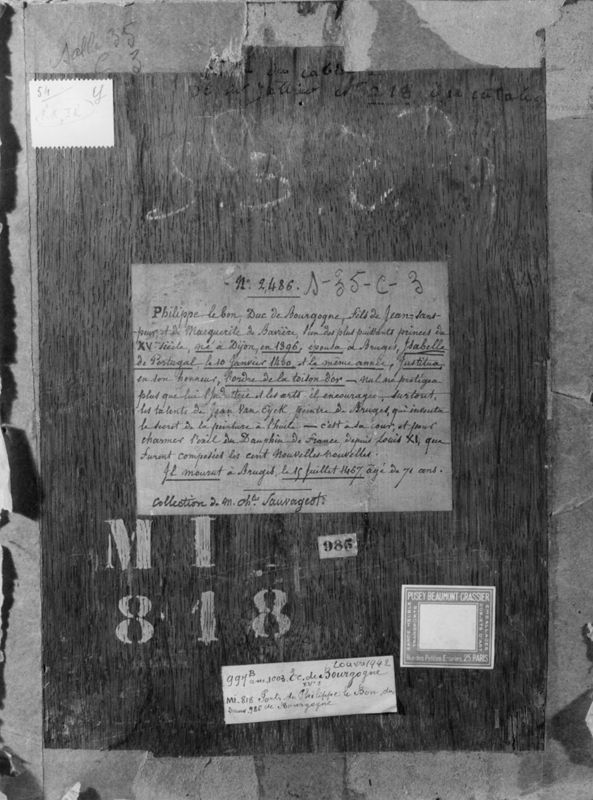 Salle 35
C 3
54 Y
de la Galerie N° 218 du catalog
N° 2,486. A-35-C-3
Philippe le bon Duc de Bourgogne, fils de Jean-sans-
peur, et de Marguerite de Bavière, l'un des plus puissants princes du
XV siècle, né à Dijon, en 1396, épousa à Bruges, Isabelle
de Portugal le 10 Janvier 1430, et la même année, Justitua,
en son honneur, l'ordre de la toison d'or — nul ne protégea
plus que lui l'industrie et les arts il encouragea, surtout,
les talents de Jean Van-Eyck peintre de Bruges, qui inventa
le secret de la peinture à l'huile — c'est à sa cour, et pour
charmer l'exil du Dauphin de France depuis Louis XI, que
furent composées les cent nouvelles nouvelles.
Il mourut à Bruges, le 15 Juillet 1467 âgé de 71 ans.
Collection de M. Ch. Sauvageot
M I
818
986
PUSEY BEAUMONT-CRASSIER
Rue des Petites Ecuries, 25 PARIS
Louvre 1942
997 B
anc. 1003 Ec. de Bourgogne
XVe s
MI. 818 Portr. de Philippe le Bon duc
986 de Bourgogne